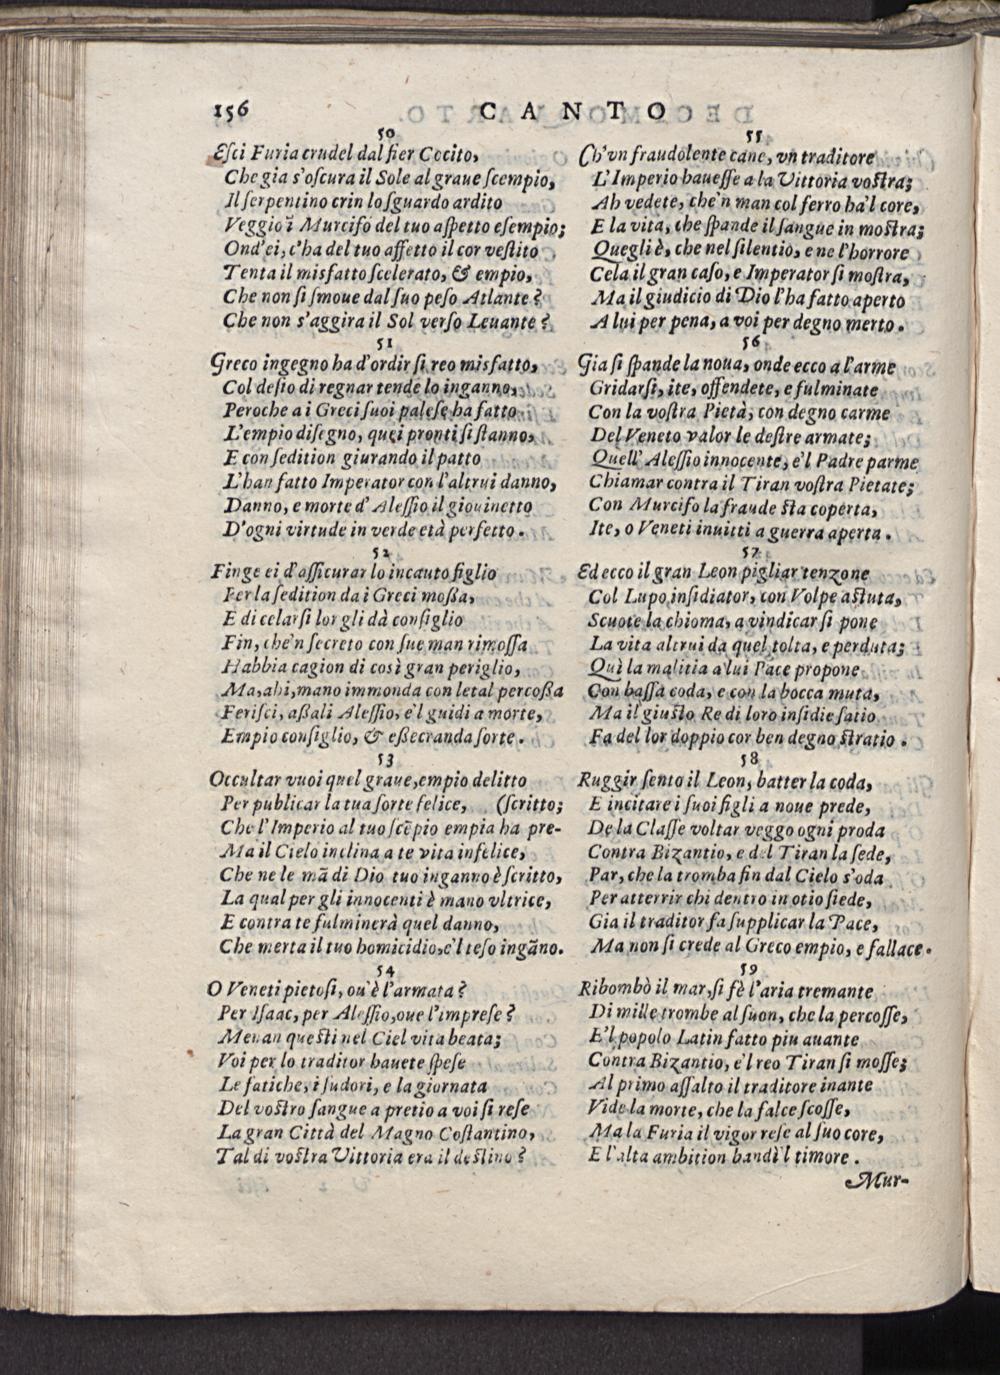 156 CANTO
50
Esci Furia crudel dal fier Cocito,
Che gia s'oscura il Sole al graue scempio,
Il serpentino crin lo sguardo ardito
Veggio ĩ Murcifo del tuo aspetto esempio;
Ond'ei, c'ha del tuo affetto il cor vestito
Tenta il misfatto scelerato, & empio,
Che non si smoue dal suo peso Atlante?
Che non s'aggira il Sol verso Leuante?
51
Greco ingegno ha d'ordir si reo misfatto,
Col desio di regnar tende lo inganno,
Peroche a i Greci suoi palese ha fatto
L'empio disegno, quei pronti si stanno,
E con sedition giurando il patto
L'han fatto Imperator con l'altrui danno,
Danno, e morte d'Alessio il giouinetto
D'ogni virtude in verde età perfetto.
52
Finge ei d'assicurar lo incauto figlio
Per la sedition da i Greci mossa,
E di celarsi lor gli dà consiglio
Fin, che'n secreto con sue man rimossa
Habbia cagion di così gran periglio,
Ma, ahi, mano immonda con letal percossa
Ferisci, assali Alessio, e'l guidi a morte,
Empio consiglio, & essecranda sorte.
53
Occultar vuoi quel graue, empio delitto
Per publicar la tua sorte felice, (scritto;
Che l'Imperio al tuo scẽpio empia ha pre-
Ma il Cielo inclina a te vita infelice,
Che ne le mã di Dio tuo inganno è scritto,
La qual per gli innocenti è mano vltrice,
E contra te fulminerà quel danno,
Che merta il tuo homicidio, e'l teso ingãno.
54
O Veneti pietosi, ou'è l'armata?
Per Isaac, per Alessio, oue l'imprese?
Menan questi nel Ciel vita beata;
Voi per lo traditor hauete spese
Le fatiche, i sudori, e la giornata
Del vostro sangue a pretio a voi si rese
La gran Città del Magno Costantino,
Tal di vostra Vittoria era il destino?
55
Ch'vn fraudolente cane, vn traditore
L'Imperio hauesse a la Vittoria vostra;
Ah vedete, che'n man col ferro ha'l core,
E la vita, che spande il sangue in mostra;
Quegli è, che nel silentio, e ne l'horrore
Cela il gran caso, e Imperator si mostra,
Ma il giudicio di Dio l'ha fatto aperto
A lui per pena, a voi per degno merto.
56
Gia si spande la noua, onde ecco a l'arme
Gridarsi, ite, offendete, e fulminate
Con la vostra Pietà, con degno carme
Del Veneto valor le destre armate;
Quell'Alessio innocente, e'l Padre parme
Chiamar contra il Tiran vostra Pietate;
Con Murcifo la fraude sta coperta,
Ite, o Veneti inuitti a guerra aperta.
57
Ed ecco il gran Leon pigliar tenzone
Col Lupo insidiator, con Volpe astuta,
Scuote la chioma, a vindicar si pone
La vita altrui da quel tolta, e perduta;
Quì la malitia a lui Pace propone
Con bassa coda, e con la bocca muta,
Ma il giusto Re di loro insidie satio
Fa del lor doppio cor ben degno stratio.
58
Ruggir sento il Leon, batter la coda,
E incitare i suoi figli a noue prede,
De la Classe voltar veggo ogni proda
Contra Bizantio, e del Tiran la sede,
Par, che la tromba fin dal Cielo s'oda
Per atterrir chi dentro in otio siede,
Gia il traditor fa supplicar la Pace,
Ma non si crede al Greco empio, e fallace.
59
Ribombò il mar, si fè l'aria tremante
Di mille trombe al suon, che la percosse,
E'l popolo Latin fatto piu auante
Contra Bizantio, e'l reo Tiran si mosse;
Al primo assalto il traditore inante
Vide la morte, che la falce scosse,
Ma la Furia il vigor rese al suo core,
E l'alta ambition bandì'l timore.
Mur-